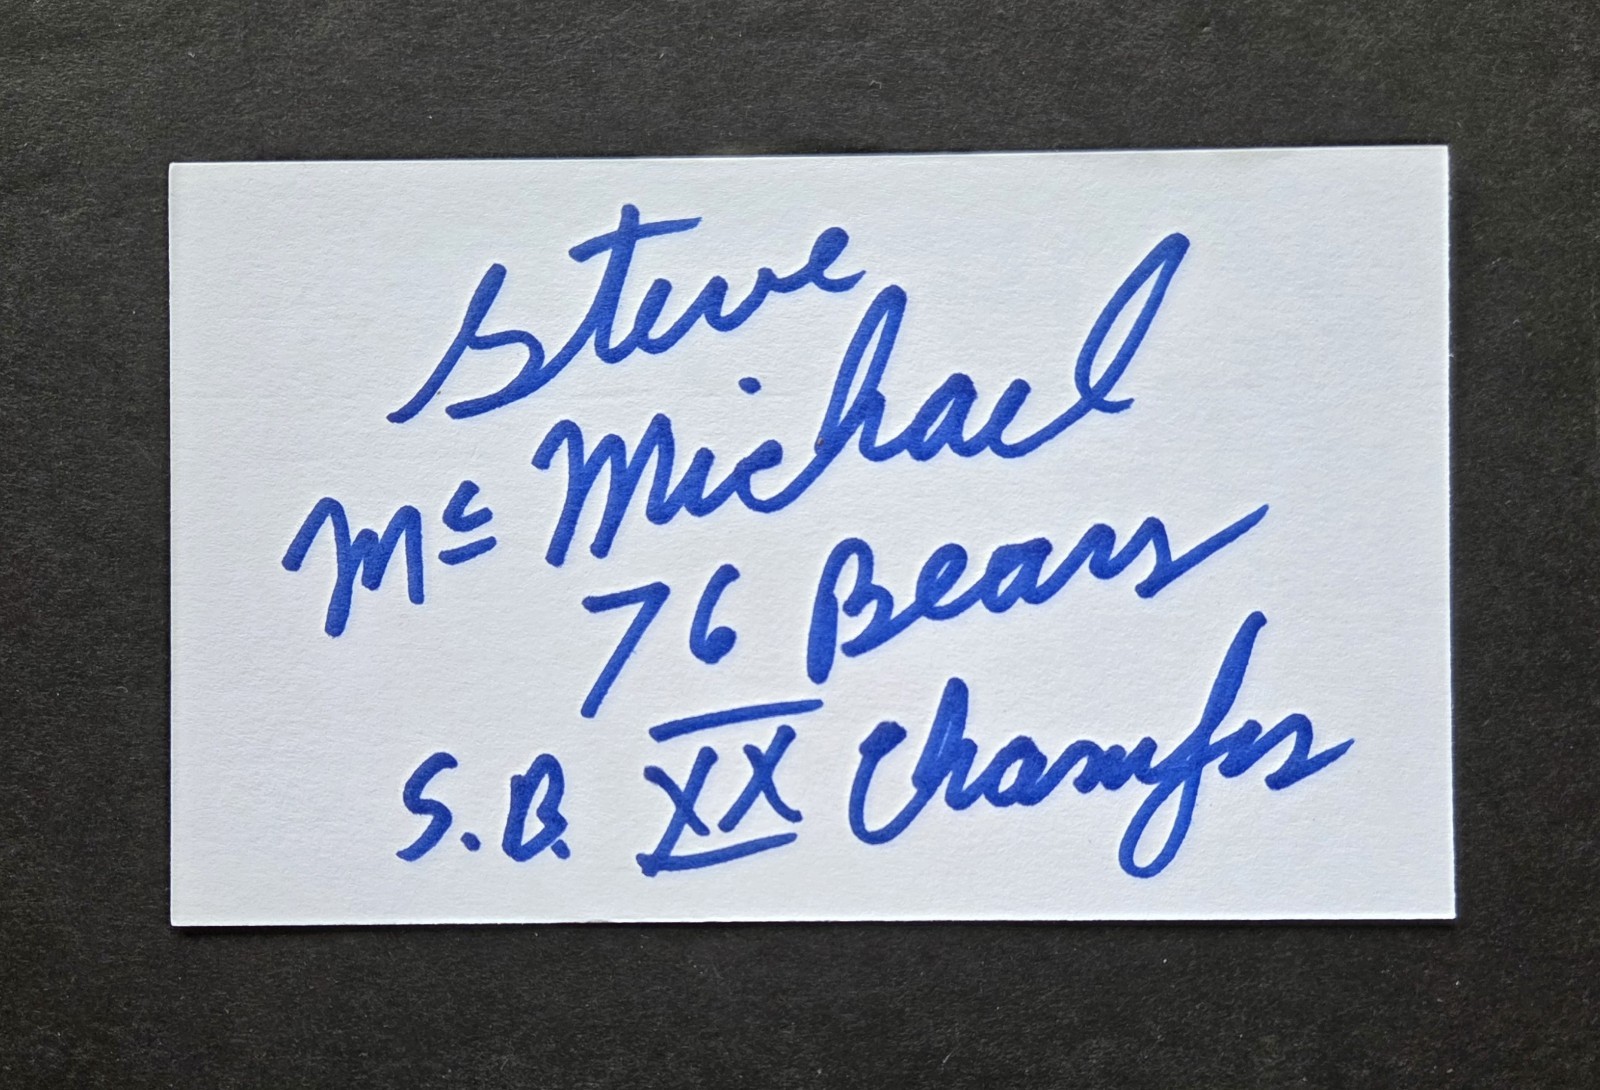 Steve
Mc Michael
76 Bears
S.B. XX Champs